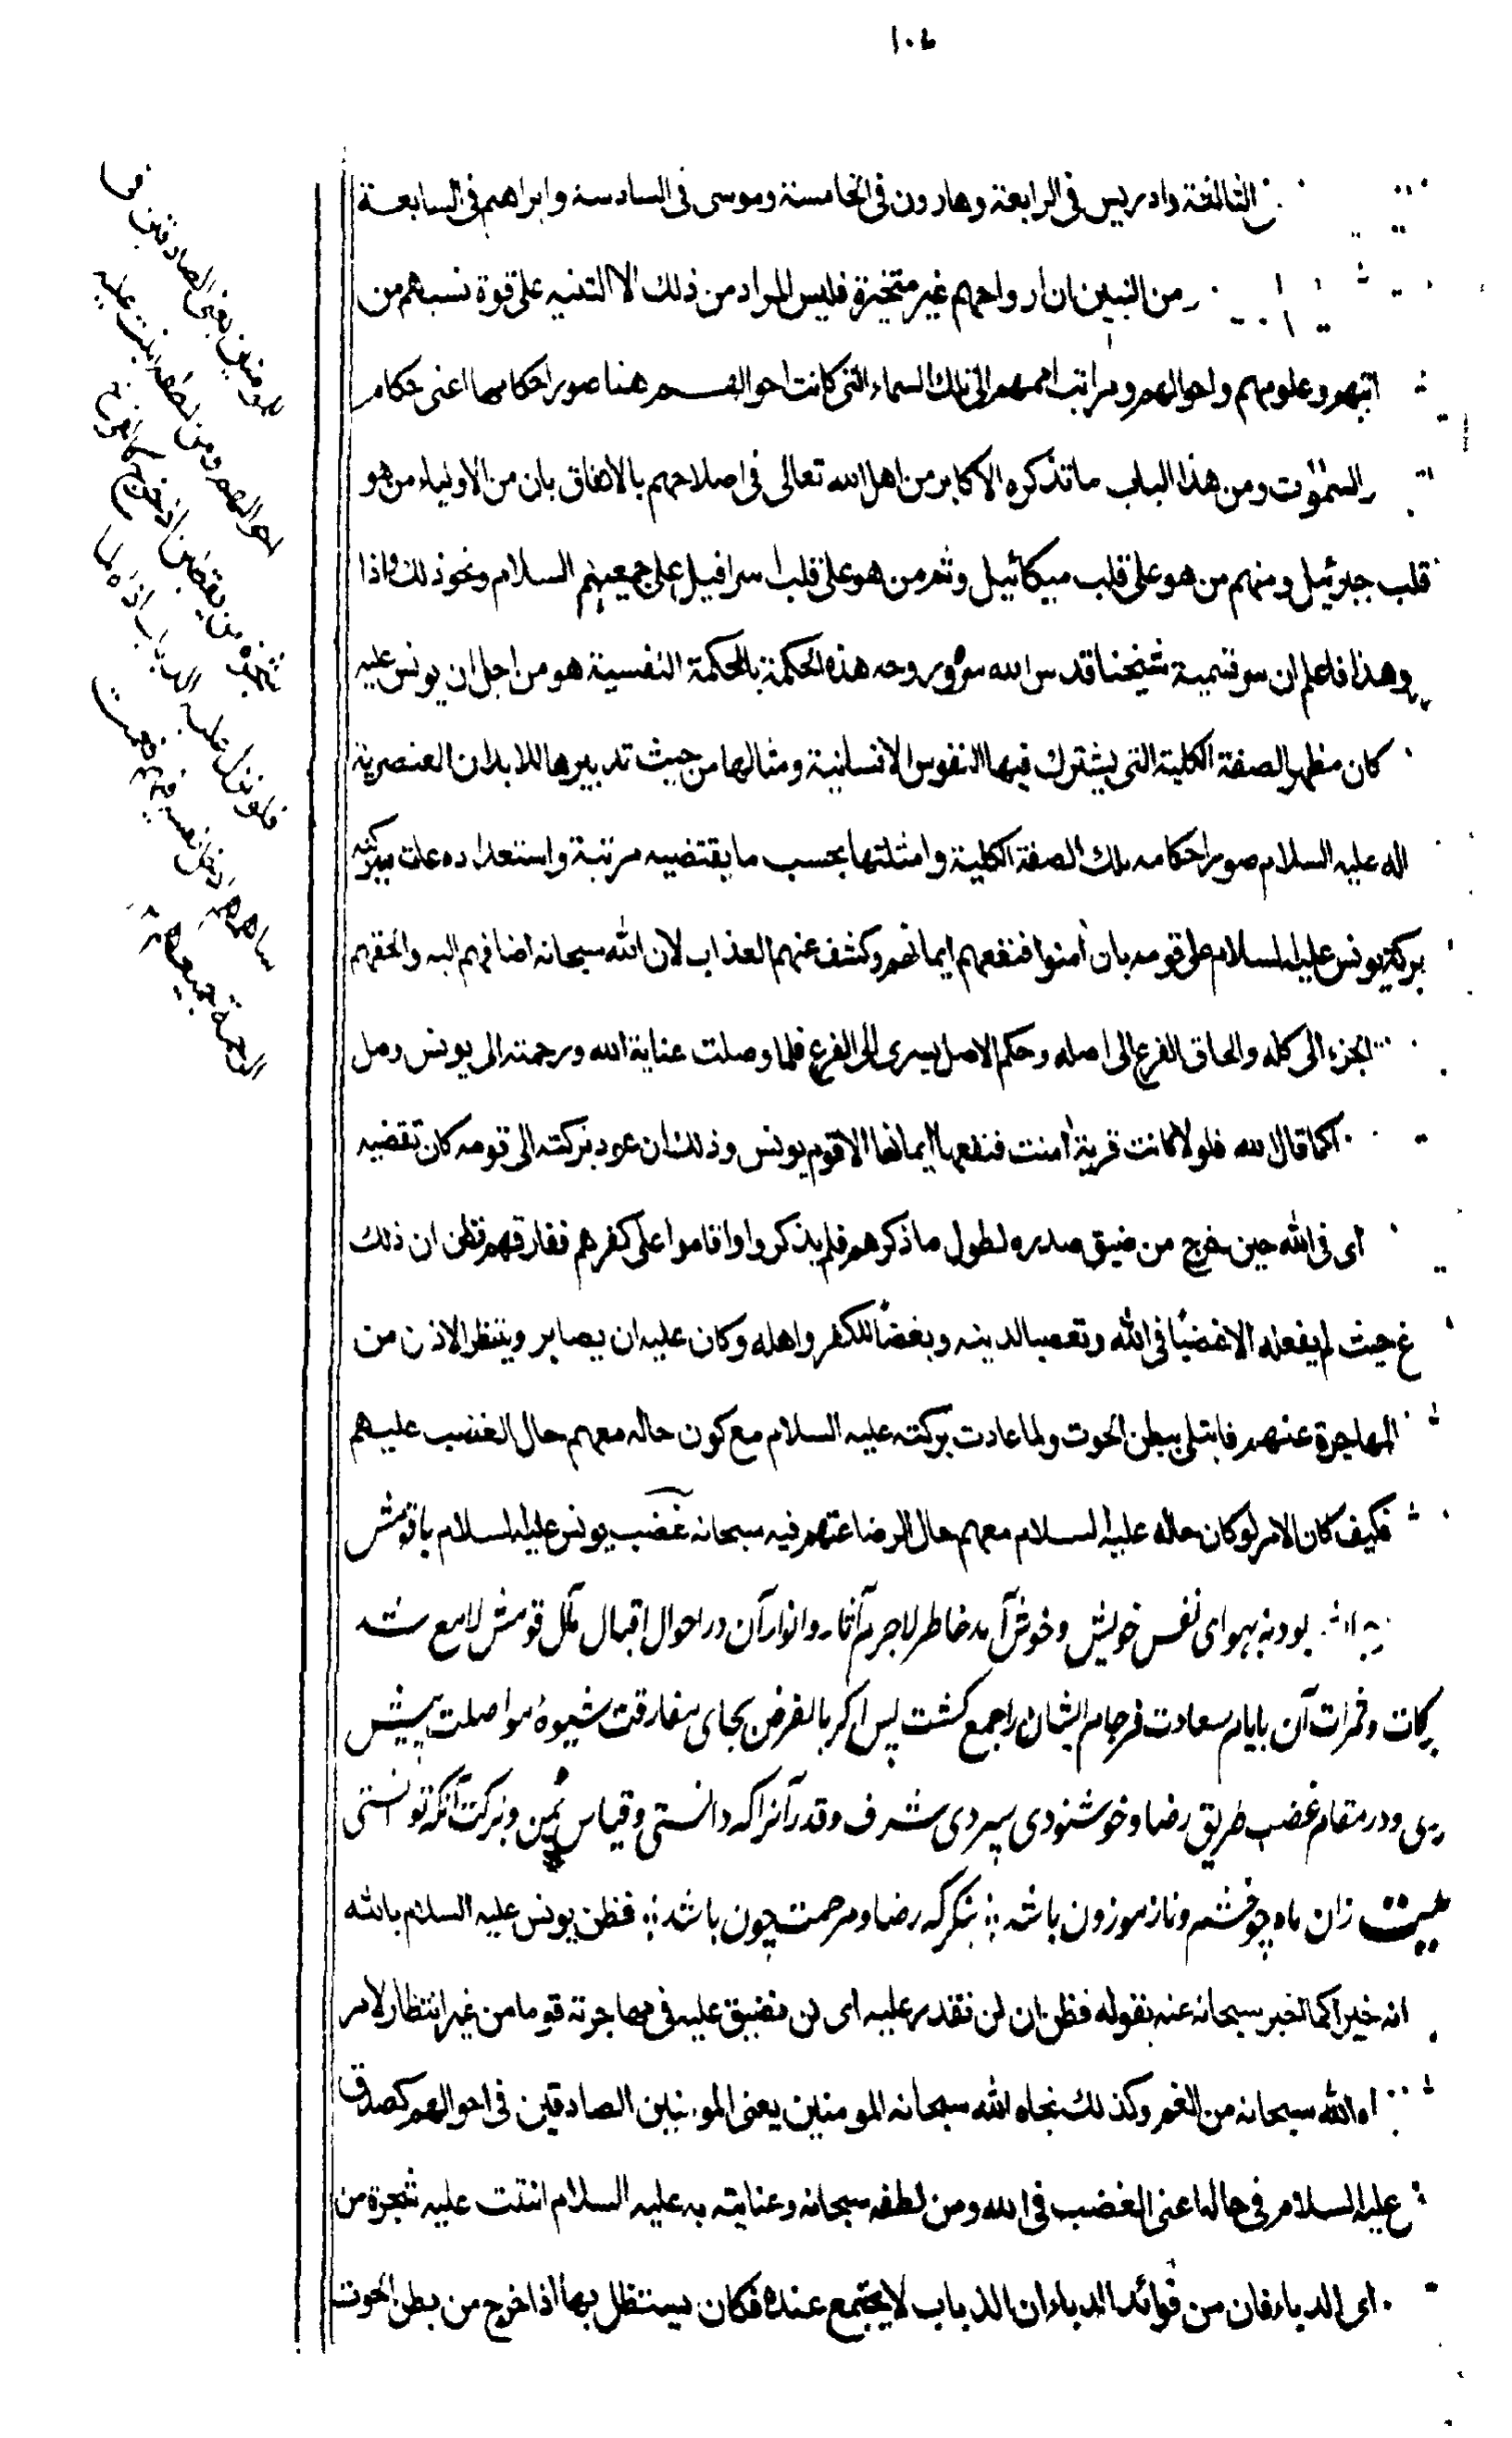 ١٠٤
الثالثة وادريس فى الرابعة وهارون فى الخامسة وموسى فى السادسة وابراهيم فى السابعة
من النبيين ان ارواحهم غير متحيزة فليس المراد من ذلك الا التنبيه على قوة نسبهم من
اتبهم وعلومهم واحوالهم ومراتب اممهم الى تلك السماء التى كانت احوالهم هنا صور احكامها اعنى احكام
السموت ومن هذا الباب ما تذكره الاكابر من اهل الله تعالى فى اصلاحهم بالاتفاق بان من الاولياء من هو
قلب جبرئيل ومنهم من هو على قلب ميكائيل وثم من هو على قلب اسرافيل على جميعهم السلام ونحو ذلك واذا
وهذا فاعلم ان سر تسمية شيخنا قدس الله سره وروحه هذه الحكمة بالحكمة النفسية هو من اجل ان يونس عليه
كان مظهر الصفة الكلية التى يشترك فيها النفوس الانسانية ومثالها من حيث تدبيرها للابدان العنصرية
اله عليه السلام صور احكام تلك الصفة الكلية وامثلتها بحسب ما يقتضيه مرتبة واستعداده عادت بركته
بركة يونس عليه السلام على قومه بان أمنوا فنفعهم ايمانهم وكشف عنهم العذاب لان الله سبحانه اضافهم اليه والحقهم
الجزء الى كله والحاق الفرع الى اصله وحكم الاصل يسرى الى الفرع فلما وصلت عناية الله ورحمته الى يونس وصل
كما قال الله فلولا كانت قرية أمنت فنفعها ايمانها الا قوم يونس وذلك ان عود بركته الى قومه كان تقضيه
اى فى الله حين خرج من ضيق صدره لطول ما ذكرهم فلم يذكروا واقاموا على كفرهم ففارقهم فظن ان ذلك
غ حيث لم يفعله الا غضبًا فى الله وتعصبا لدينه وبغضًا للكفر واهله وكان عليه ان يصابر وينتظر الاذن من
المهاجرة عنهم فابتلى ببطن الحوت ولما عادت بركته عليه السلام مع كون حاله معهم حال الغضب عليهم
فكيف كان الامر لو كان حاله عليه السلام معهم حال الرضا عنهم فيه سبحانه غضب يونس عليه السلام باقومش
بود نه بهواى نفس خويش وخوش آمد خاطر لاجرم آثار وانوار آن در احوال اقبال مآل قومش لامع شد
بركات وثمرات آن بايام سعادت فرجام ايشان راجع كشت پس اكر بالفرض بجاى مفارقت شيوۀ مواصلت پيش
ودر مقام غضب طريق رضا وخوشنودى سپردى شرف وقدر آنرا كه دانستى وقياس يمن وبركت آنكه توانستى
بيت زان ماه چو خشم وناز موزون باشد ؛ بنكر كه رضا ومرحمت چون باشد ؛ فظن يونس عليه السلام بالله
انه خيرا كما اخبر سبحانه عنه بقوله فظن ان لن نقدر عليه اى لن نضيق عليه فى مهاجرته قوما من غير انتظار لامر
اه الله سبحانه من الغم وكذلك نجاه الله سبحانه المومنين يعنى المومنين الصادقين فى احوالهم كصدق
عليه السلام فى حاله اعنى الغضب فى الله ومن لطفه سبحانه وعنايته به عليه السلام انبتت عليه شجرة من
اى الدباء فان من فوائد الدباء ان الذباب لا يجتمع عنده فكان يستظل بها اذا خرج من بطن الحوت
يعنى الصادقين فى
احوالهم ومن لطفه انبت عليه
شجرة من يقطين اذ خرج
فلو نزل عليه الذباب اذاه